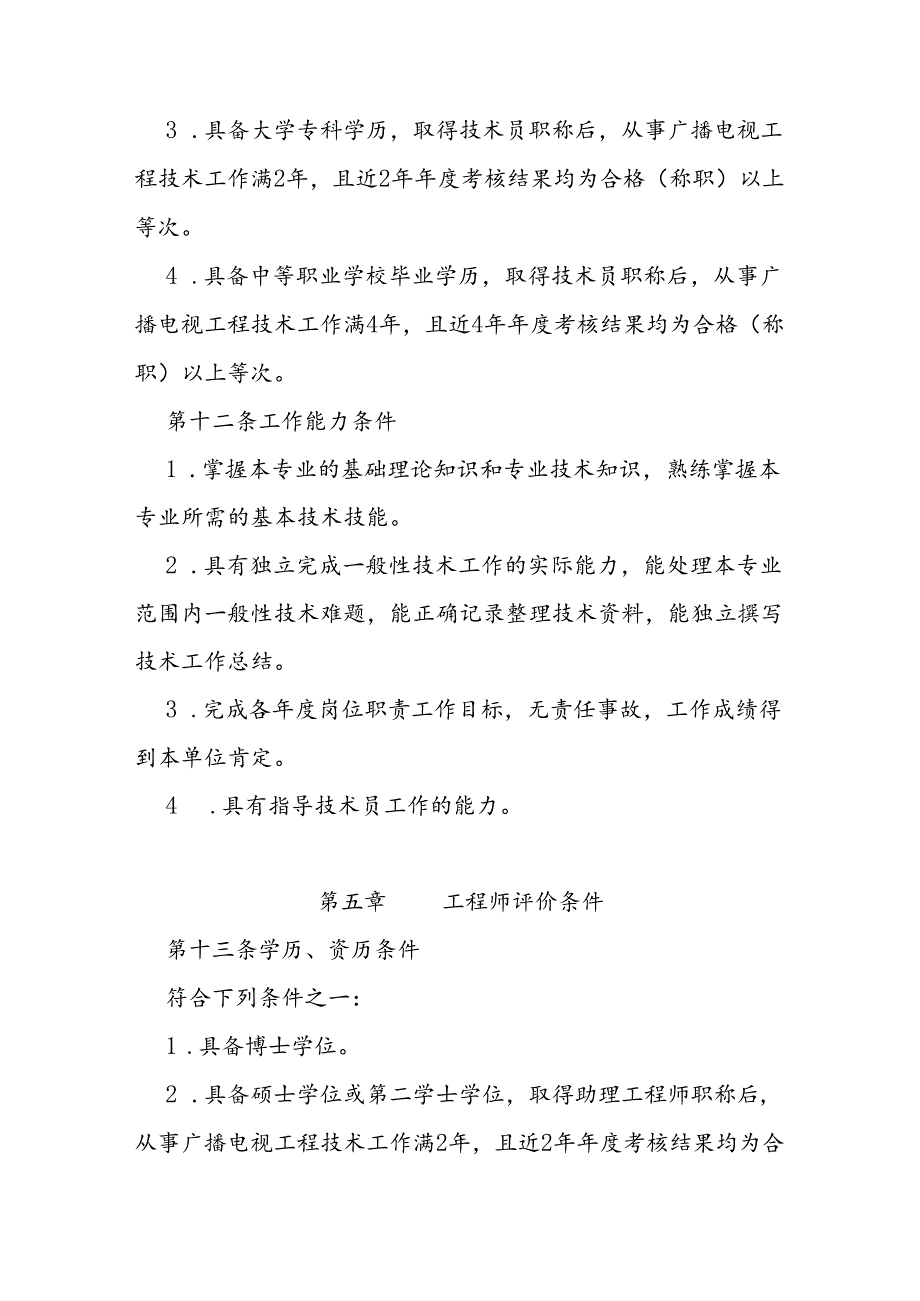 3 .具备大学专科学历，取得技术员职称后，从事广播电视工
程技术工作满2年，且近2年年度考核结果均为合格（称职）以上
等次。
4 .具备中等职业学校毕业学历，取得技术员职称后，从事广
播电视工程技术工作满4年，且近4年年度考核结果均为合格（称
职）以上等次。
第十二条工作能力条件
1 .掌握本专业的基础理论知识和专业技术知识，熟练掌握本
专业所需的基本技术技能。
2 .具有独立完成一般性技术工作的实际能力，能处理本专业
范围内一般性技术难题，能正确记录整理技术资料，能独立撰写
技术工作总结。
3 .完成各年度岗位职责工作目标，无责任事故，工作成绩得
到本单位肯定。
4 .具有指导技术员工作的能力。
第五章 工程师评价条件
第十三条学历、资历条件
符合下列条件之一：
1 .具备博士学位。
2 .具备硕士学位或第二学士学位，取得助理工程师职称后，
从事广播电视工程技术工作满2年，且近2年年度考核结果均为合